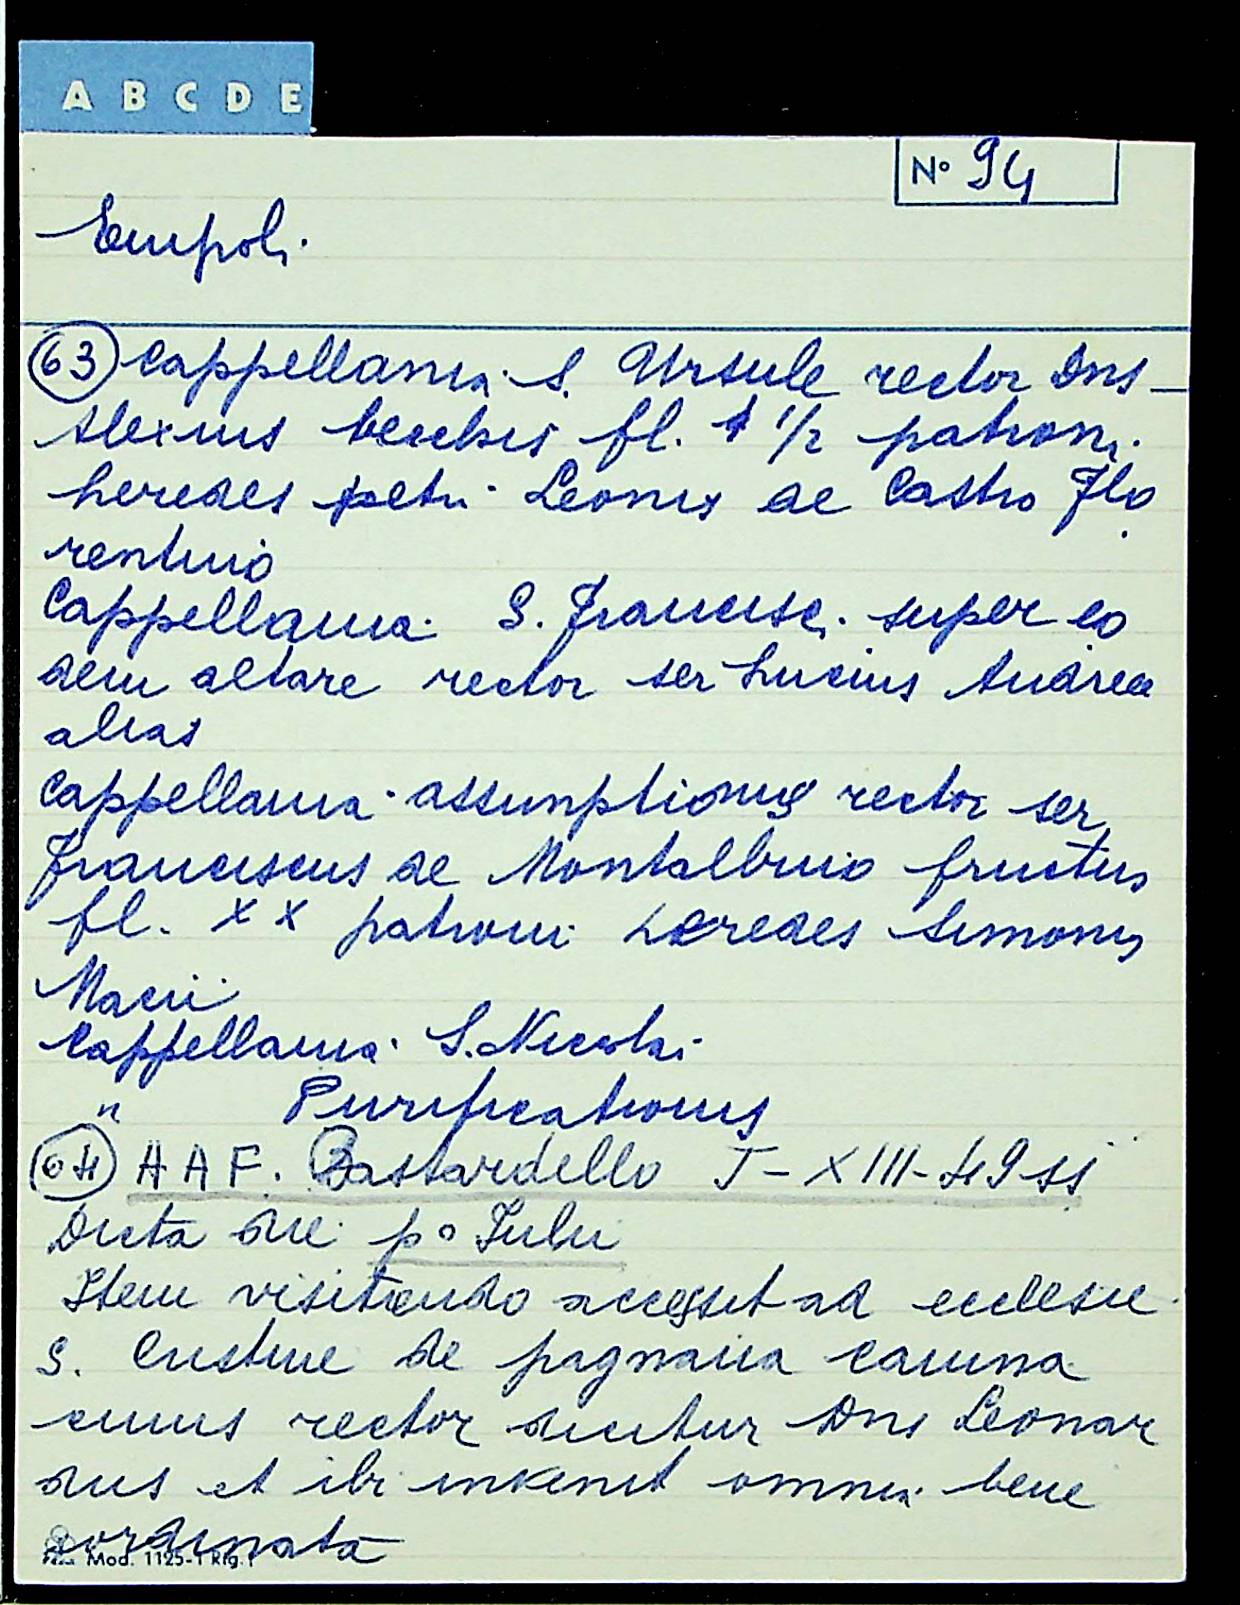 A B C D E
N° 94
Empoli
63 Cappellania S. Ursule rector Dns
Alexius becchis fl. 1/2 patroni
heredes petri Leonis de Castro Flo
rentino
Cappellania S. Francisci super eo
dem altare rector ser Lucius Andree
alias
Cappellania assumptionis rector ser
Franciscus de Montalbino fructus
fl. XX patroni heredes Simonis
Macii
Cappellania S. Nicolai
" Purificationis
64 AAF. Bastardello I-XIII-49 ss
Dicta die po Iulii
Item visitando accessit ad ecclesie
S. Cristine de pagnana canina
cuius rector dicitur Dns Leonar
dus et ibi invenit omnia bene
ordinata
Mod. 1125-1 Rig. 1